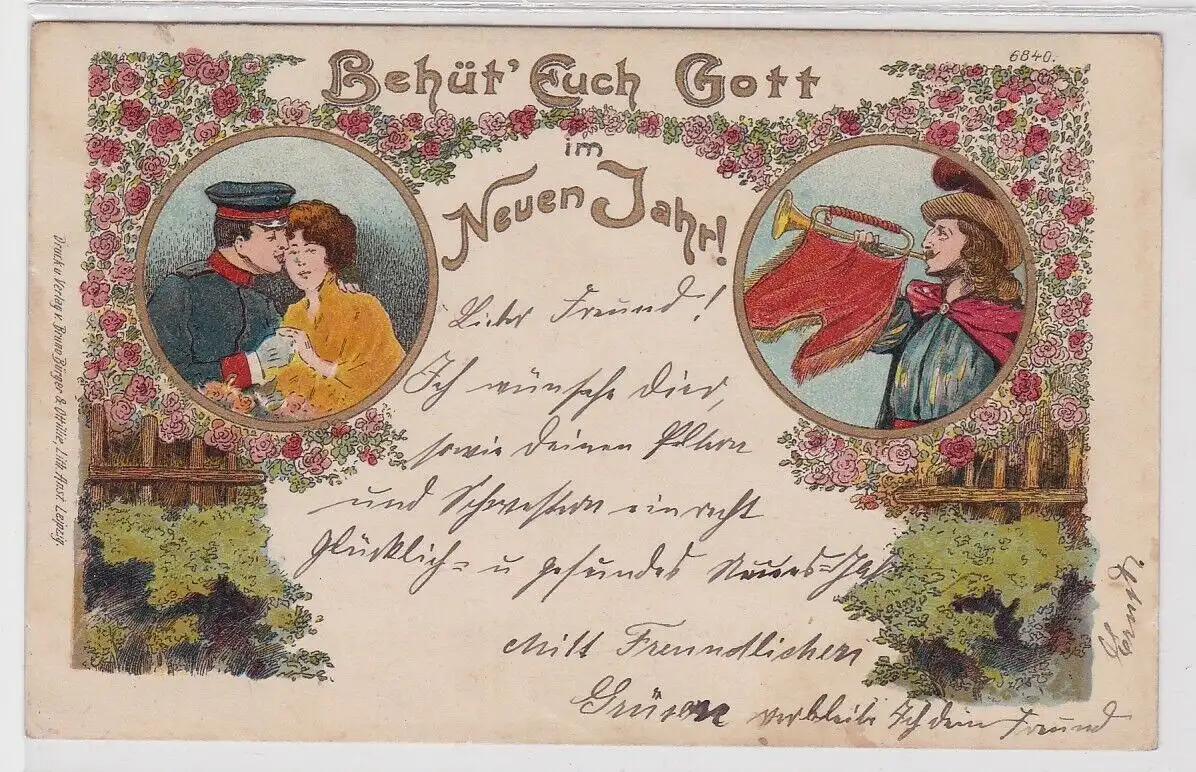 6840.
Behüt' Euch Gott
im
Neuen Jahr!
Lieber Freund!
Ich wünsche Dier,
sowie deinen Eltern
und Schwestern ein recht
Glücklich= u gesundes Neues=Jahr
Mitt Freundlichen
Grüsen verbleibe Ich dein Freund
Druck u. Verlag v. Bruno Bürger & Ottillie, Lith. Anst. Leipzig.